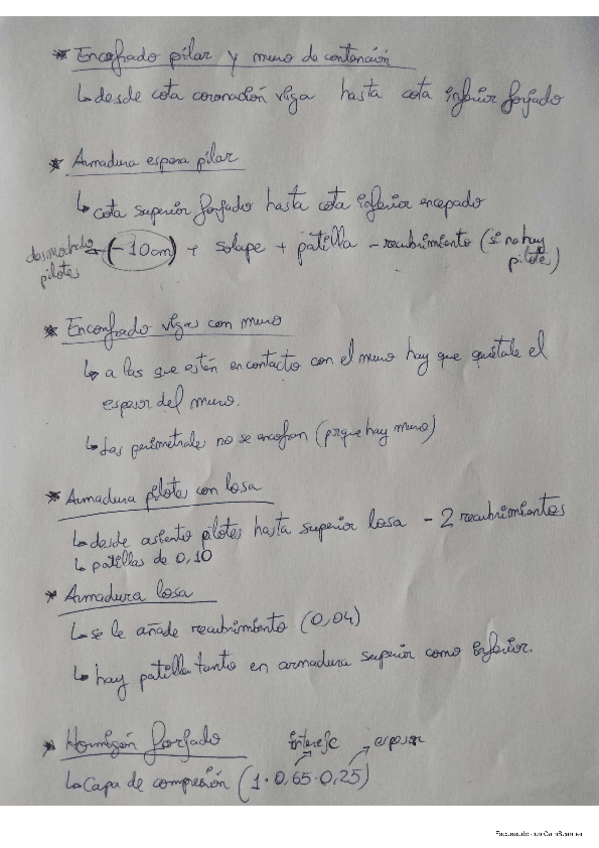 * Encofrado pilar y muro de contención
↳ desde cota coronación viga hasta cota inferior forjado
* Armadura espera pilar
↳ cota superior forjado hasta cota inferior encepado
desmochado pilotes ← (-10cm) + solape + patilla - recubrimiento (si no hay pilotes)
* Enconfrado vigas con muro
↳ a las que estén en contacto con el muro hay que quitale el
espesor del muro.
↳ Las perimetrales no se encofran (porque hay muro)
* Armadura pilotes con losa
↳ desde asiento pilotes hasta superior losa - 2 recubrimientos
↳ patillas de 0,10
* Armadura losa
↳ se le añade recubrimiento (0,04)
↳ hay patilla tanto en armadura superior como inferior.
* Hormigón forjado
intereje espesor
↳ Capa de compresión (1·0,65·0,25)